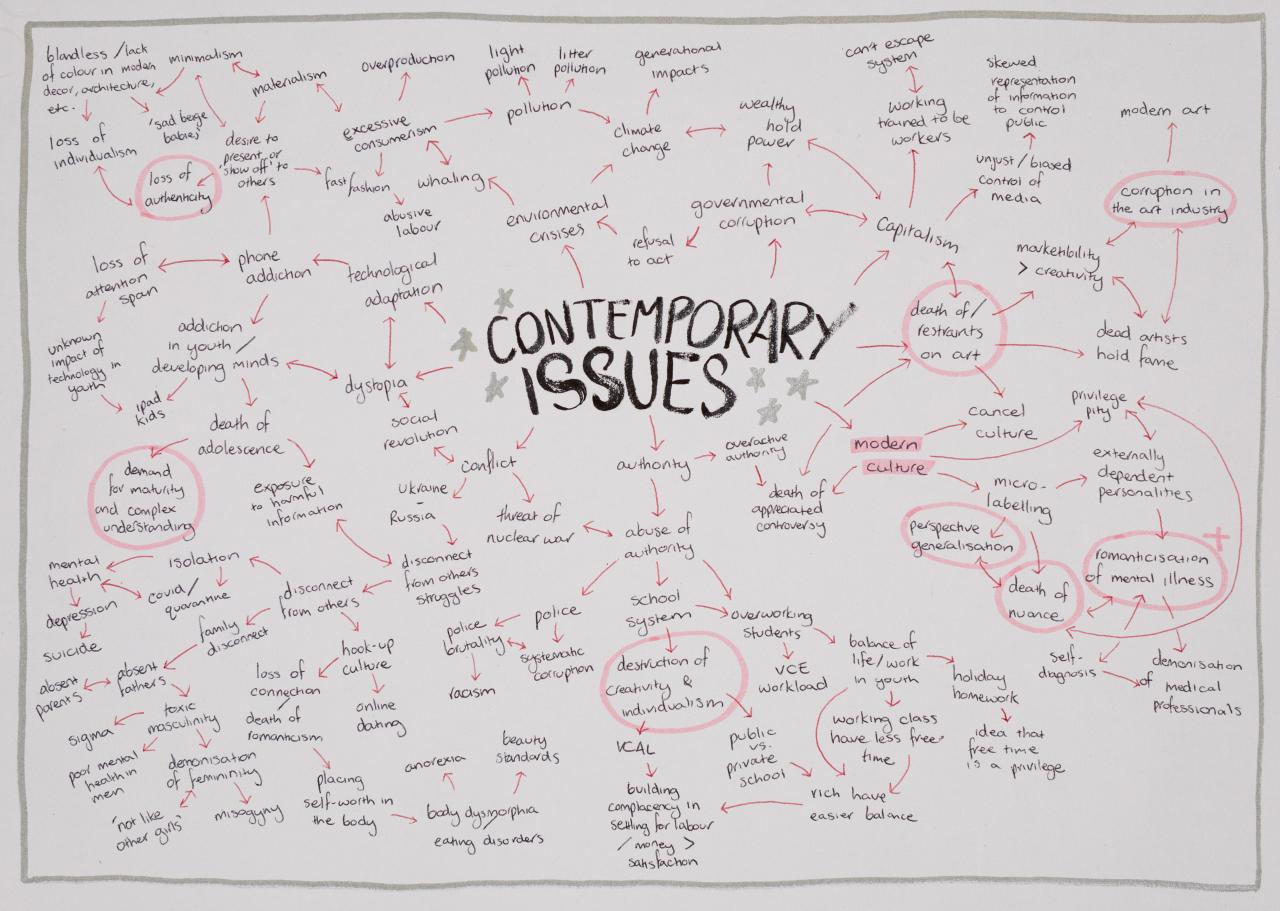 CONTEMPORARY
ISSUES
blandless / lack
of colour in modern
decor, architecture,
etc.
minimalism
materialism
overproduction
light
pollution
litter
pollution
generational
impacts
can't escape
system
skewed
representation
of information
to control
public
modern art
loss of
individualism
'sad beige
babies'
desire to
present or
'show off' to
others
excessive
consumerism
pollution
climate
change
wealthy
hold
power
working
trained to be
workers
unjust/biased
control of
media
corruption in
the art industry
loss of
authenticity
fast/fashion
whaling
abusive
labour
environmental
crisises
refusal
to act
governmental
corruption
Capitalism
marketibility
> creativity
loss of
attention
span
phone
addiction
technological
adaptation
death of/
restraints
on art
dead artists
hold fame
unknown
impact of
technology in
youth
addiction
in youth/
developing minds
ipad
kids
dystopia
social
revolution
cancel
culture
privilege
pity
death of
adolescence
conflict
authority
overactive
authority
modern
culture
externally
dependent
personalities
demand
for maturity
and complex
understanding
exposure
to harmful
information
ukraine
-
Russia
threat of
nuclear war
abuse of
authority
death of
appreciated
controversy
micro-
labelling
perspective
generalisation
romanticisation
of mental illness
+
death of
nuance
mental
health
isolation
covid/
quarantine
disconnect
from others
disconnect
from others
struggles
depression
suicide
family
disconnect
police
police
brutality
systematic
corruption
racism
school
system
overworking
students
VCE
workload
balance of
life/work
in youth
holiday
homework
self-
diagnosis
demonisation
of medical
professionals
absent
parents
absent
fathers
loss of
connection
/
death of
romanticism
hook-up
culture
online
dating
destruction of
creativity &
individualism
sigma
toxic
masculinity
poor mental
health in
men
demonisation
of femininity
'not like
other girls'
misogyny
placing
self-worth in
the body
anorexia
beauty
standards
body dysmorphia
/
eating disorders
VCAL
public
vs.
private
school
working class
have less free
time
idea that
free time
is a privilege
building
complacency in
settling for labour
/ money >
satisfaction
rich have
easier balance